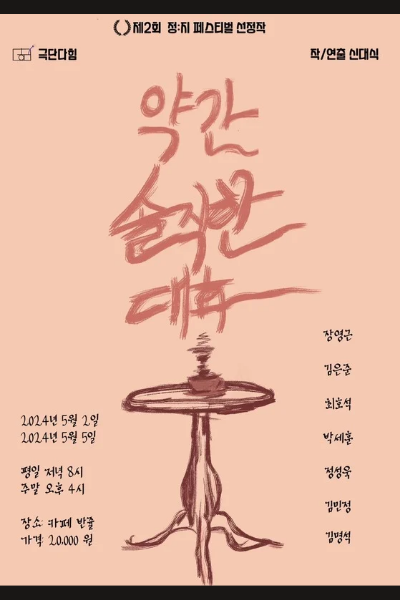 제2회 정:지 페스티벌 선정작
극단다힘
작/연출 신대식
약간
솔직한
대화
장영근
김은준
최호석
박세훈
정성욱
김민정
김명석
2024년 5월 2일
2024년 5월 5일
평일 저녁 8시
주말 오후 4시
장소: 카페 반쥴
가격: 20,000 원